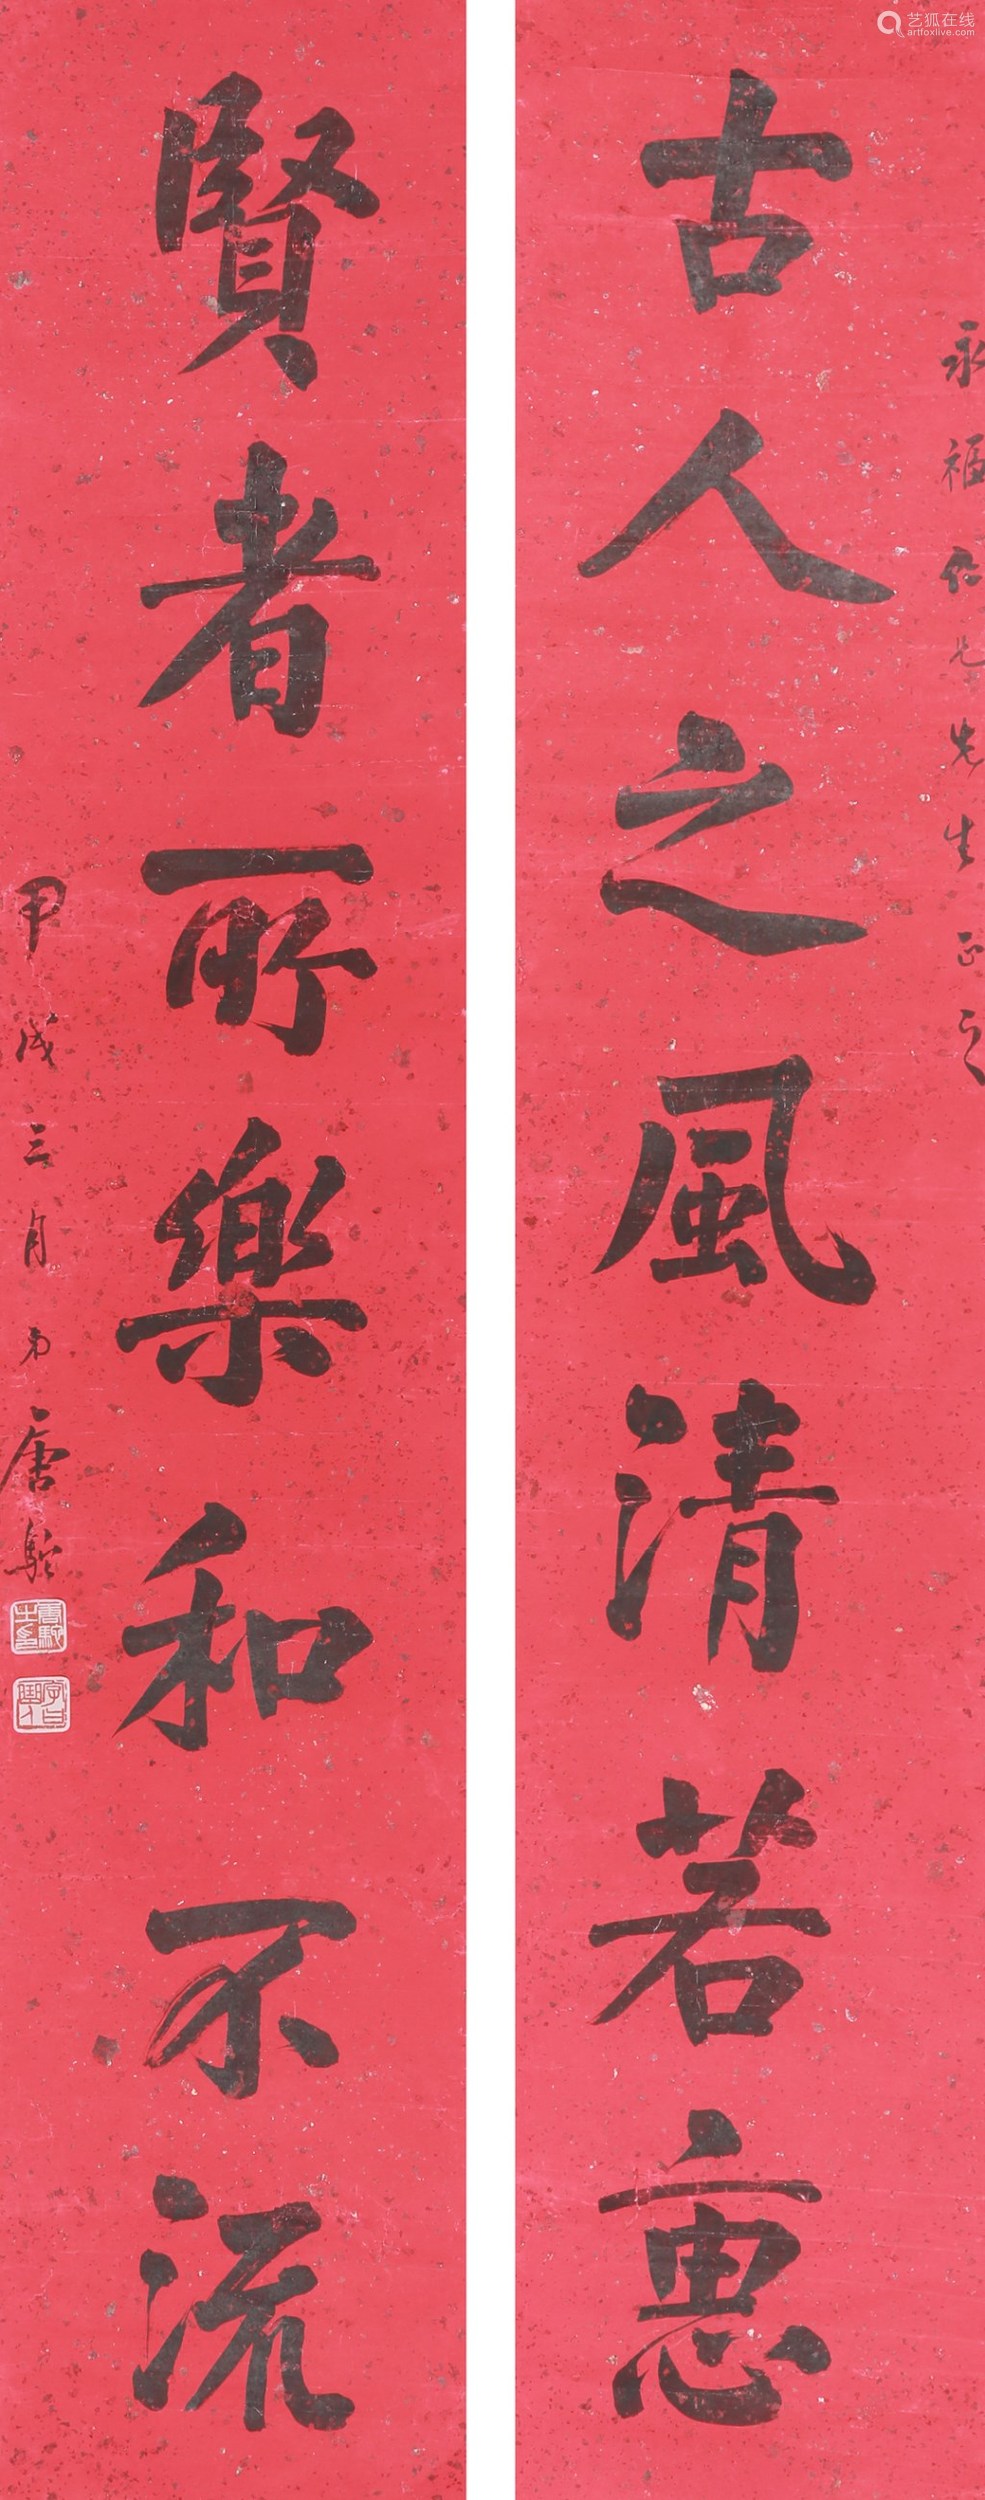 永福仁兄先生正之
古人之風清若惠
賢者所樂和不流
甲戌三月弟唐駝
唐駝之印
艺狐在线
artfoxlive.com